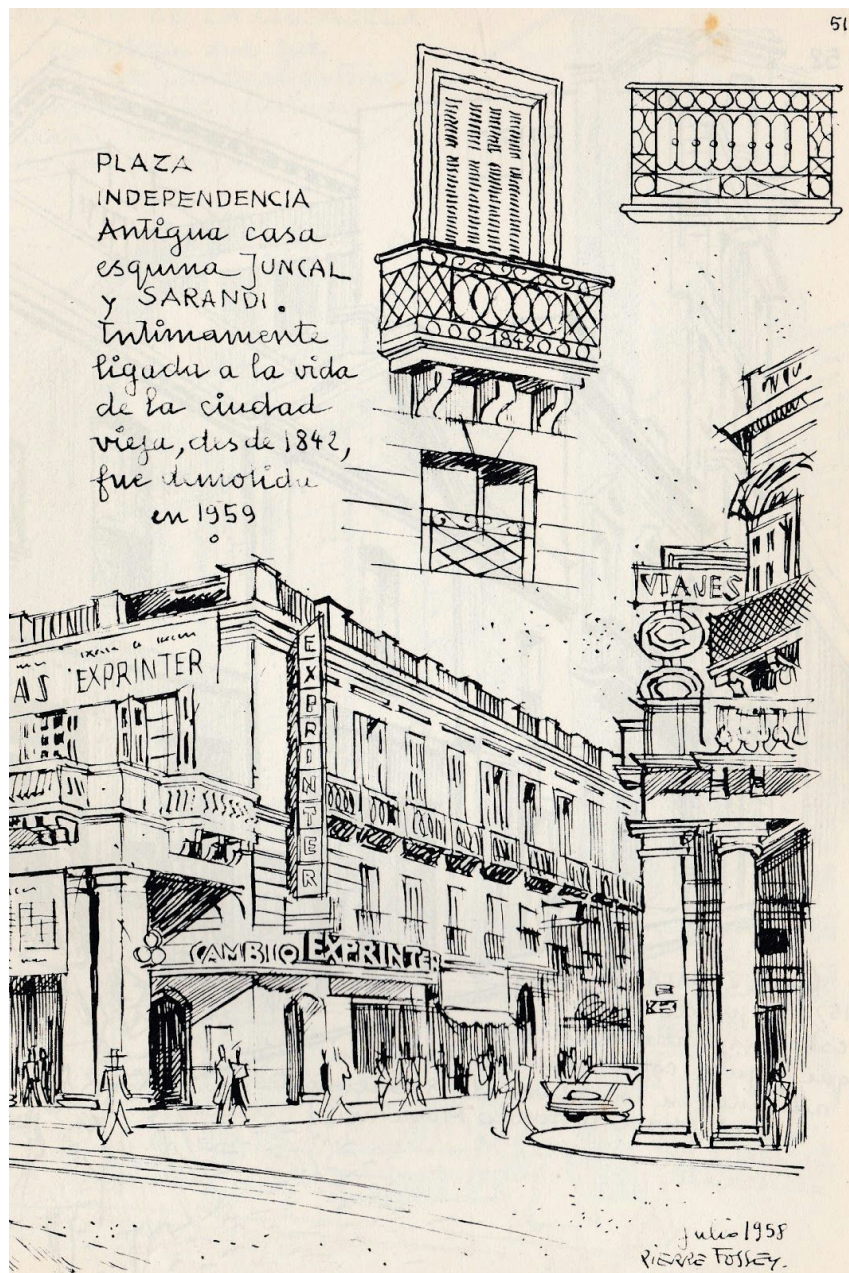 51
PLAZA
INDEPENDENCIA
Antigua casa
esquina JUNCAL
y SARANDI.
Intimamente
ligada a la vida
de la ciudad
vieja, desde 1842,
fue demolida
en 1959
1842
VIAJES
COC
AS EXPRINTER
EXPRINTER
CAMBIO EXPRINTER
julio 1958
PIERRE FOSSEY.